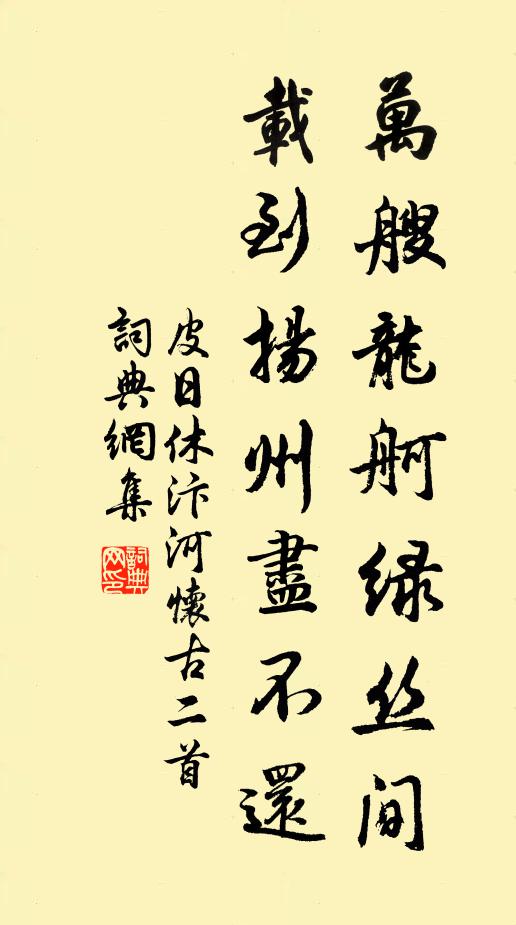 萬艘龍舸绿丝間
載到揚州盡不還
皮日休汴河懷古二首
詞典網集
詞典网印